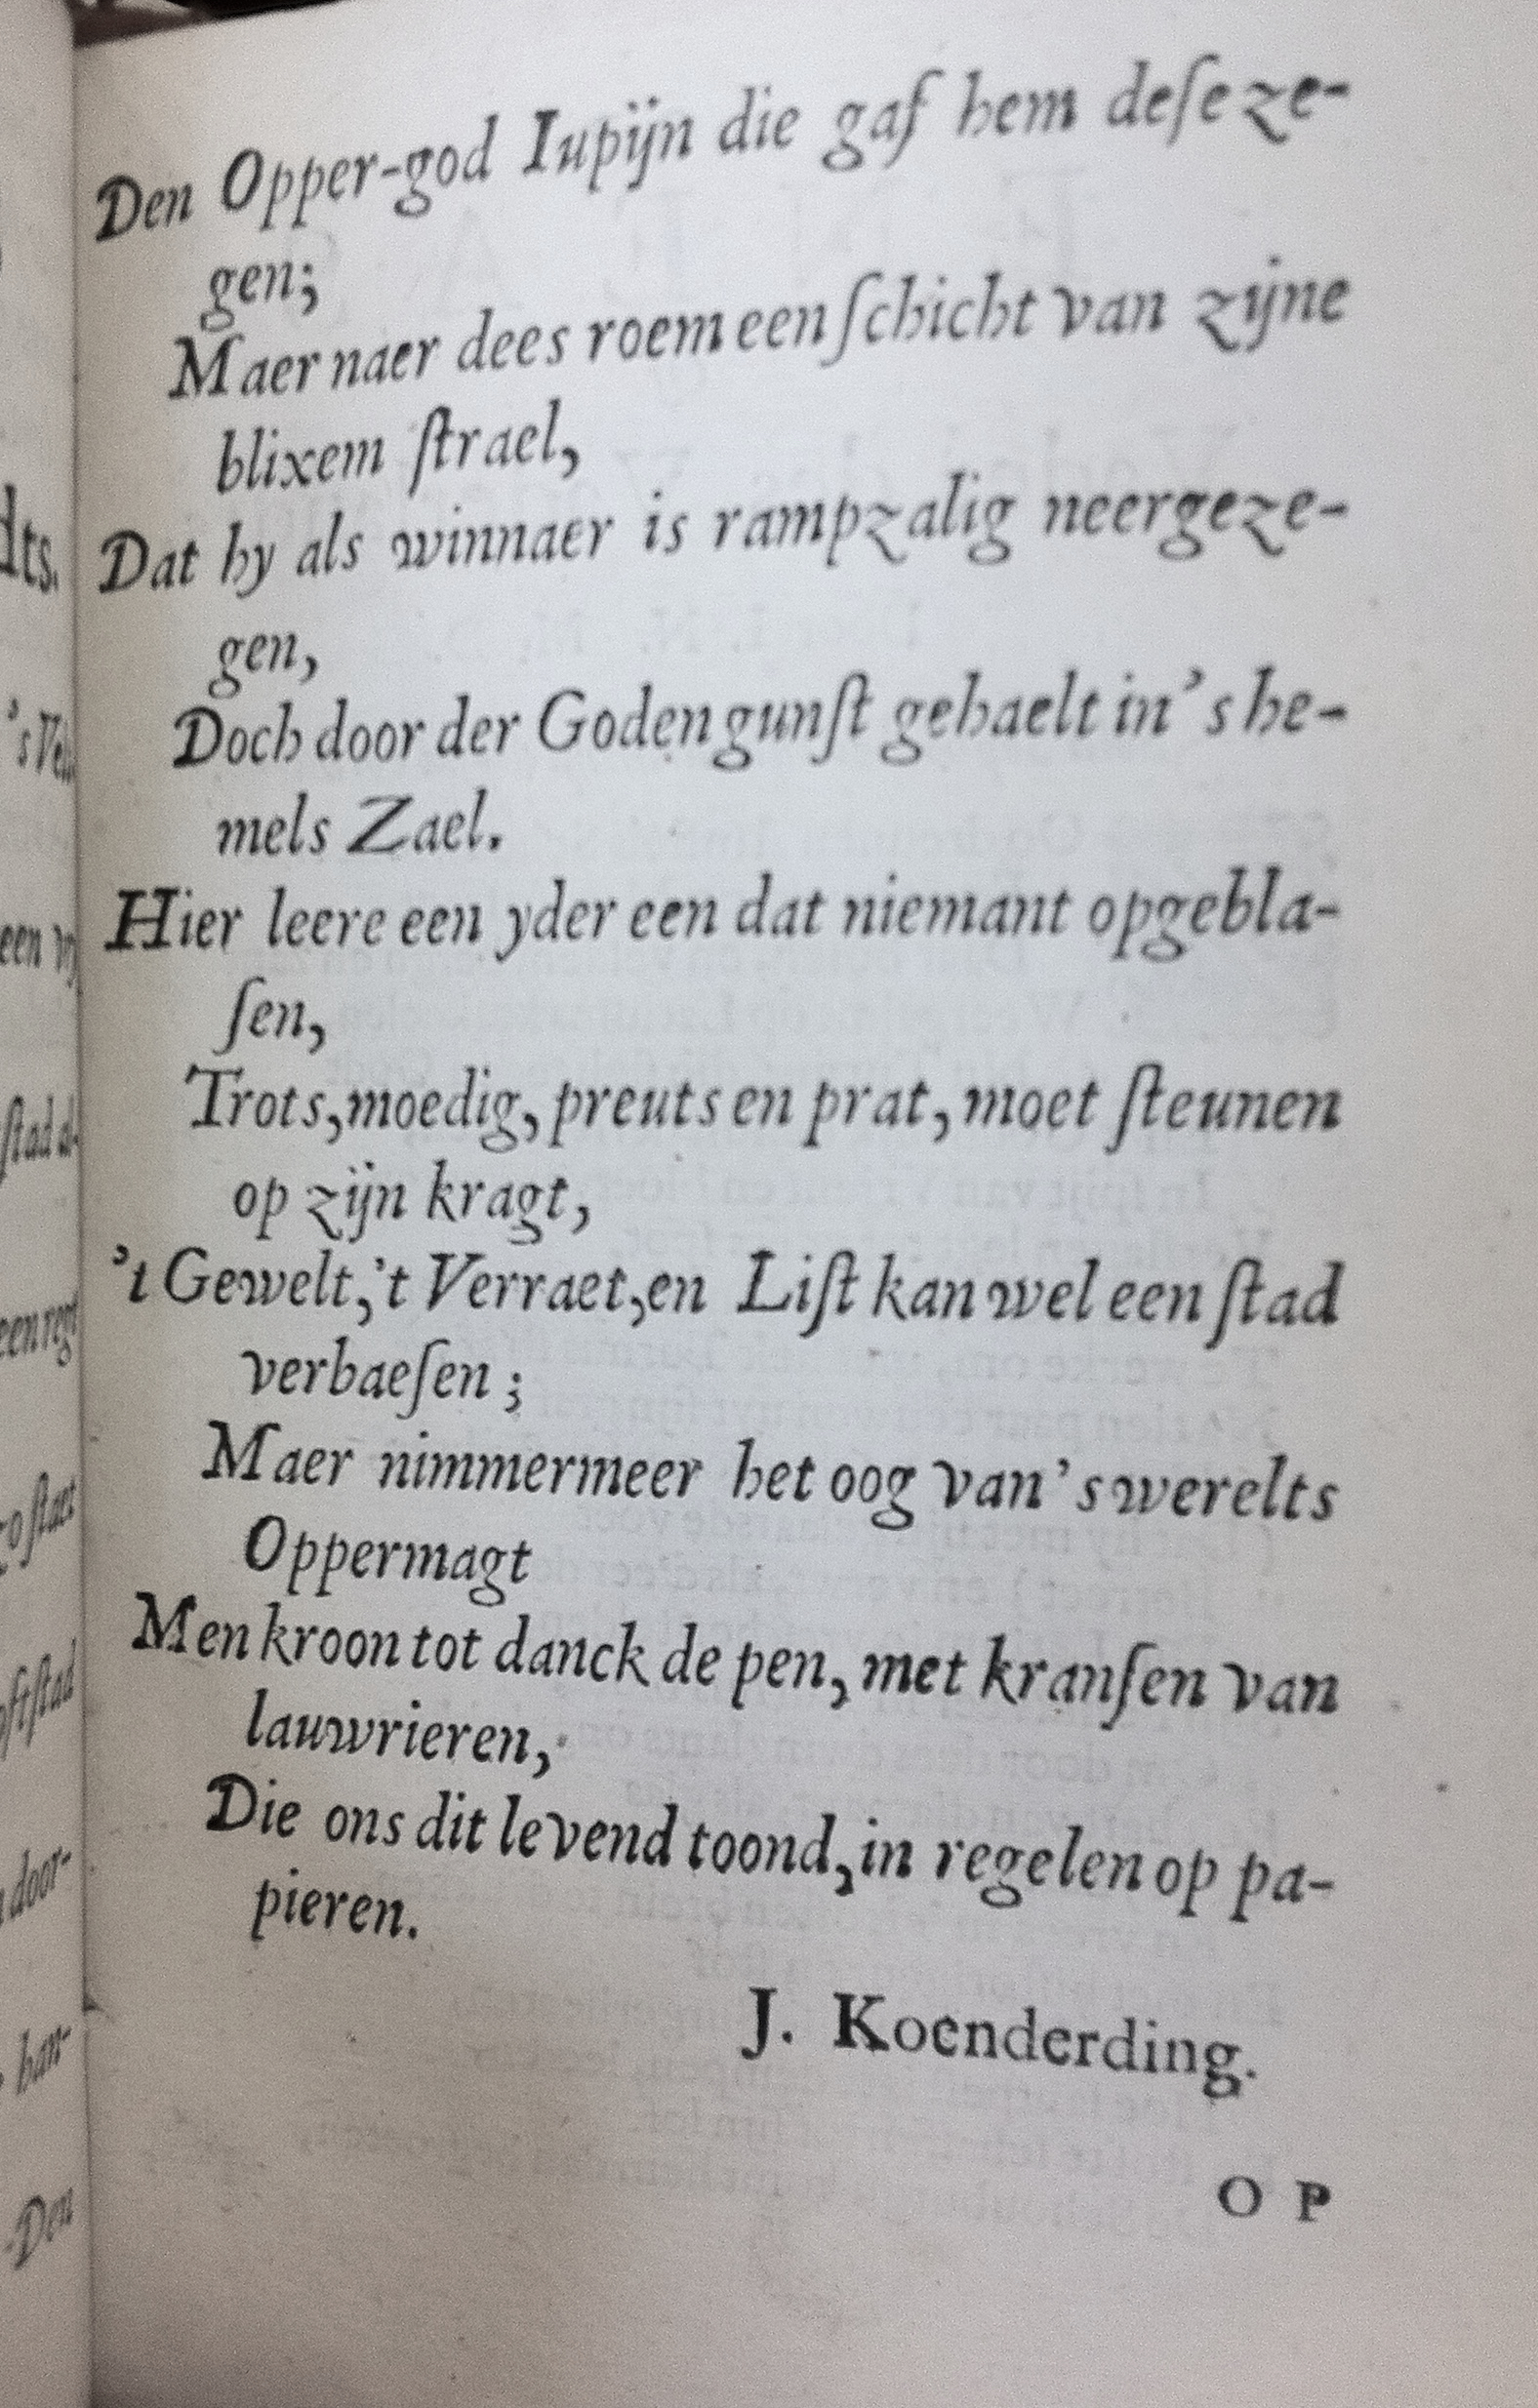 Den Opper-god Iupijn die gaf hem deſe ze-
gen;
Maer naer dees roem een ſchicht van zijne
blixem ſtrael,
Dat hy als winnaer is rampzalig neergeze-
gen,
Doch door der Goden gunſt gehaelt in 's he-
mels Zael.
Hier leere een yder een dat niemant opgebla-
ſen,
Trots, moedig, preuts en prat, moet ſteunen
op zijn kragt,
't Gewelt, 't Verraet, en Liſt kan wel een ſtad
verbaeſen;
Maer nimmermeer het oog van 's werelts
Oppermagt
Men kroon tot danck de pen, met kranſen van
lauwrieren,
Die ons dit levend toond, in regelen op pa-
pieren.
J. Koenderding.
O P